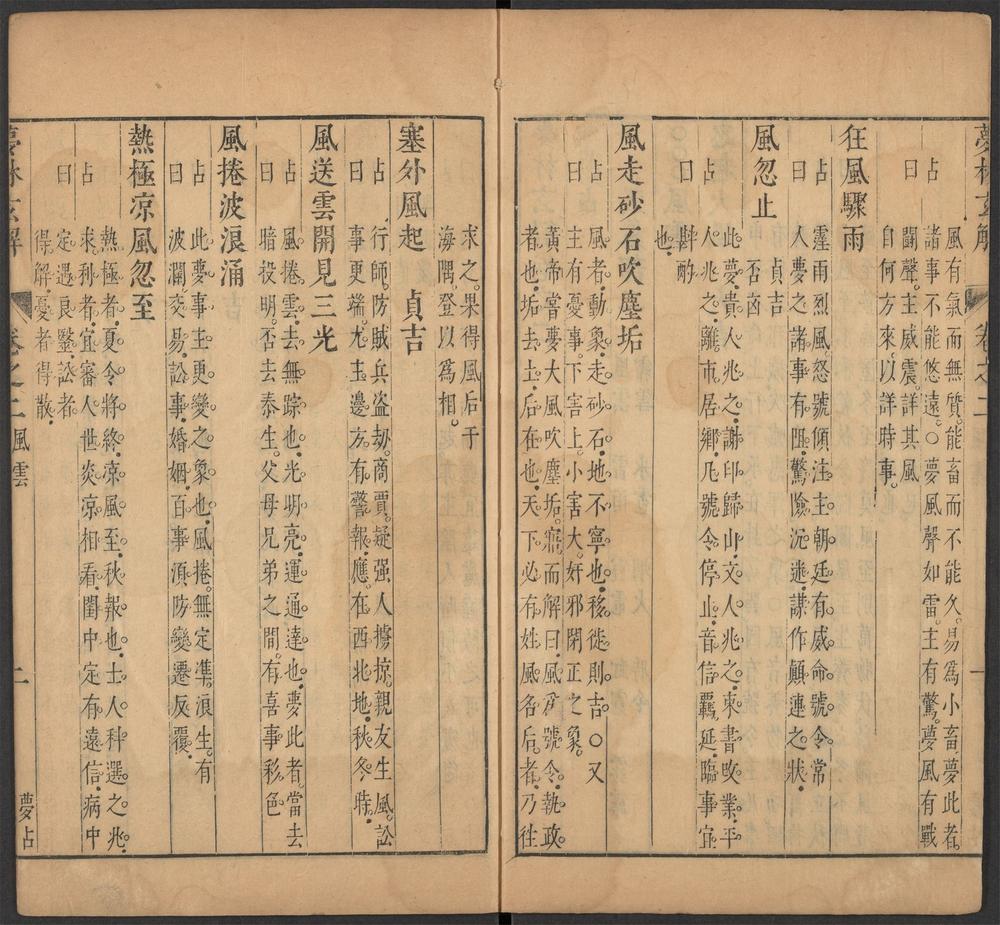 夢林玄解 卷之二 一
風有氣而無質。能畜而不能久。易爲小畜夢此者。
占 諸事不能悠遠。○夢風聲如雷。主有驚。夢風有戰
曰 鬬聲。主威震。詳其風
自何方來。以詳時事。
狂風驟雨
占 霪雨烈風。怒號傾注。主朝廷有威命。號令常
曰 人夢之。諸事有阻。驚險沉迷。謀作顛連之狀。
風忽止 貞吉 否凶
此夢。貴人兆之。謝印歸山。文人兆之。束書改業。平
占 人兆之。離市居鄉。凡號令停止。音信羈延。臨事宜
曰 斟酌
也。
風走砂石吹塵垢
占 風者。動象。走砂石。地不寧也。移徙則吉。○又
曰 主有憂事。下害上。小害大。奸邪閉正之象。
黃帝嘗夢大風吹塵垢。寤而解曰。風爲號令。執政
者也。垢去土。后在也。天下必有姓風名后者。乃往
求之。果得風后于
海隅。登以爲相。
塞外風起 貞吉
占 行師。防賊兵盜劫。商賈。疑强人擄掠。親友生風。訟
曰 事更端。尤主邊方。有警報。應在西北地。秋冬時。
風送雲開見三光
占 風捲雲去無踪也。光明亮。運通達也。夢此者。當去
曰 暗投明。否去泰生。父母兄弟之間。有喜事彩色。
風捲波浪涌
占 此夢。事主更變之象也。風捲。無定準。浪生。有
曰 波瀾。交易。訟事。婚姻。百事。湏防變遷反覆。
熱極凉風忽至
熱極者。夏令將終。凉風至。秋報也。士人科選之兆。
占 求利者。宜審人世炎凉相看。閨中定有遠信。病中
曰 定遇良毉。訟者。
得解。憂者得散。
夢林玄解 卷之二 風雲 二 夢占